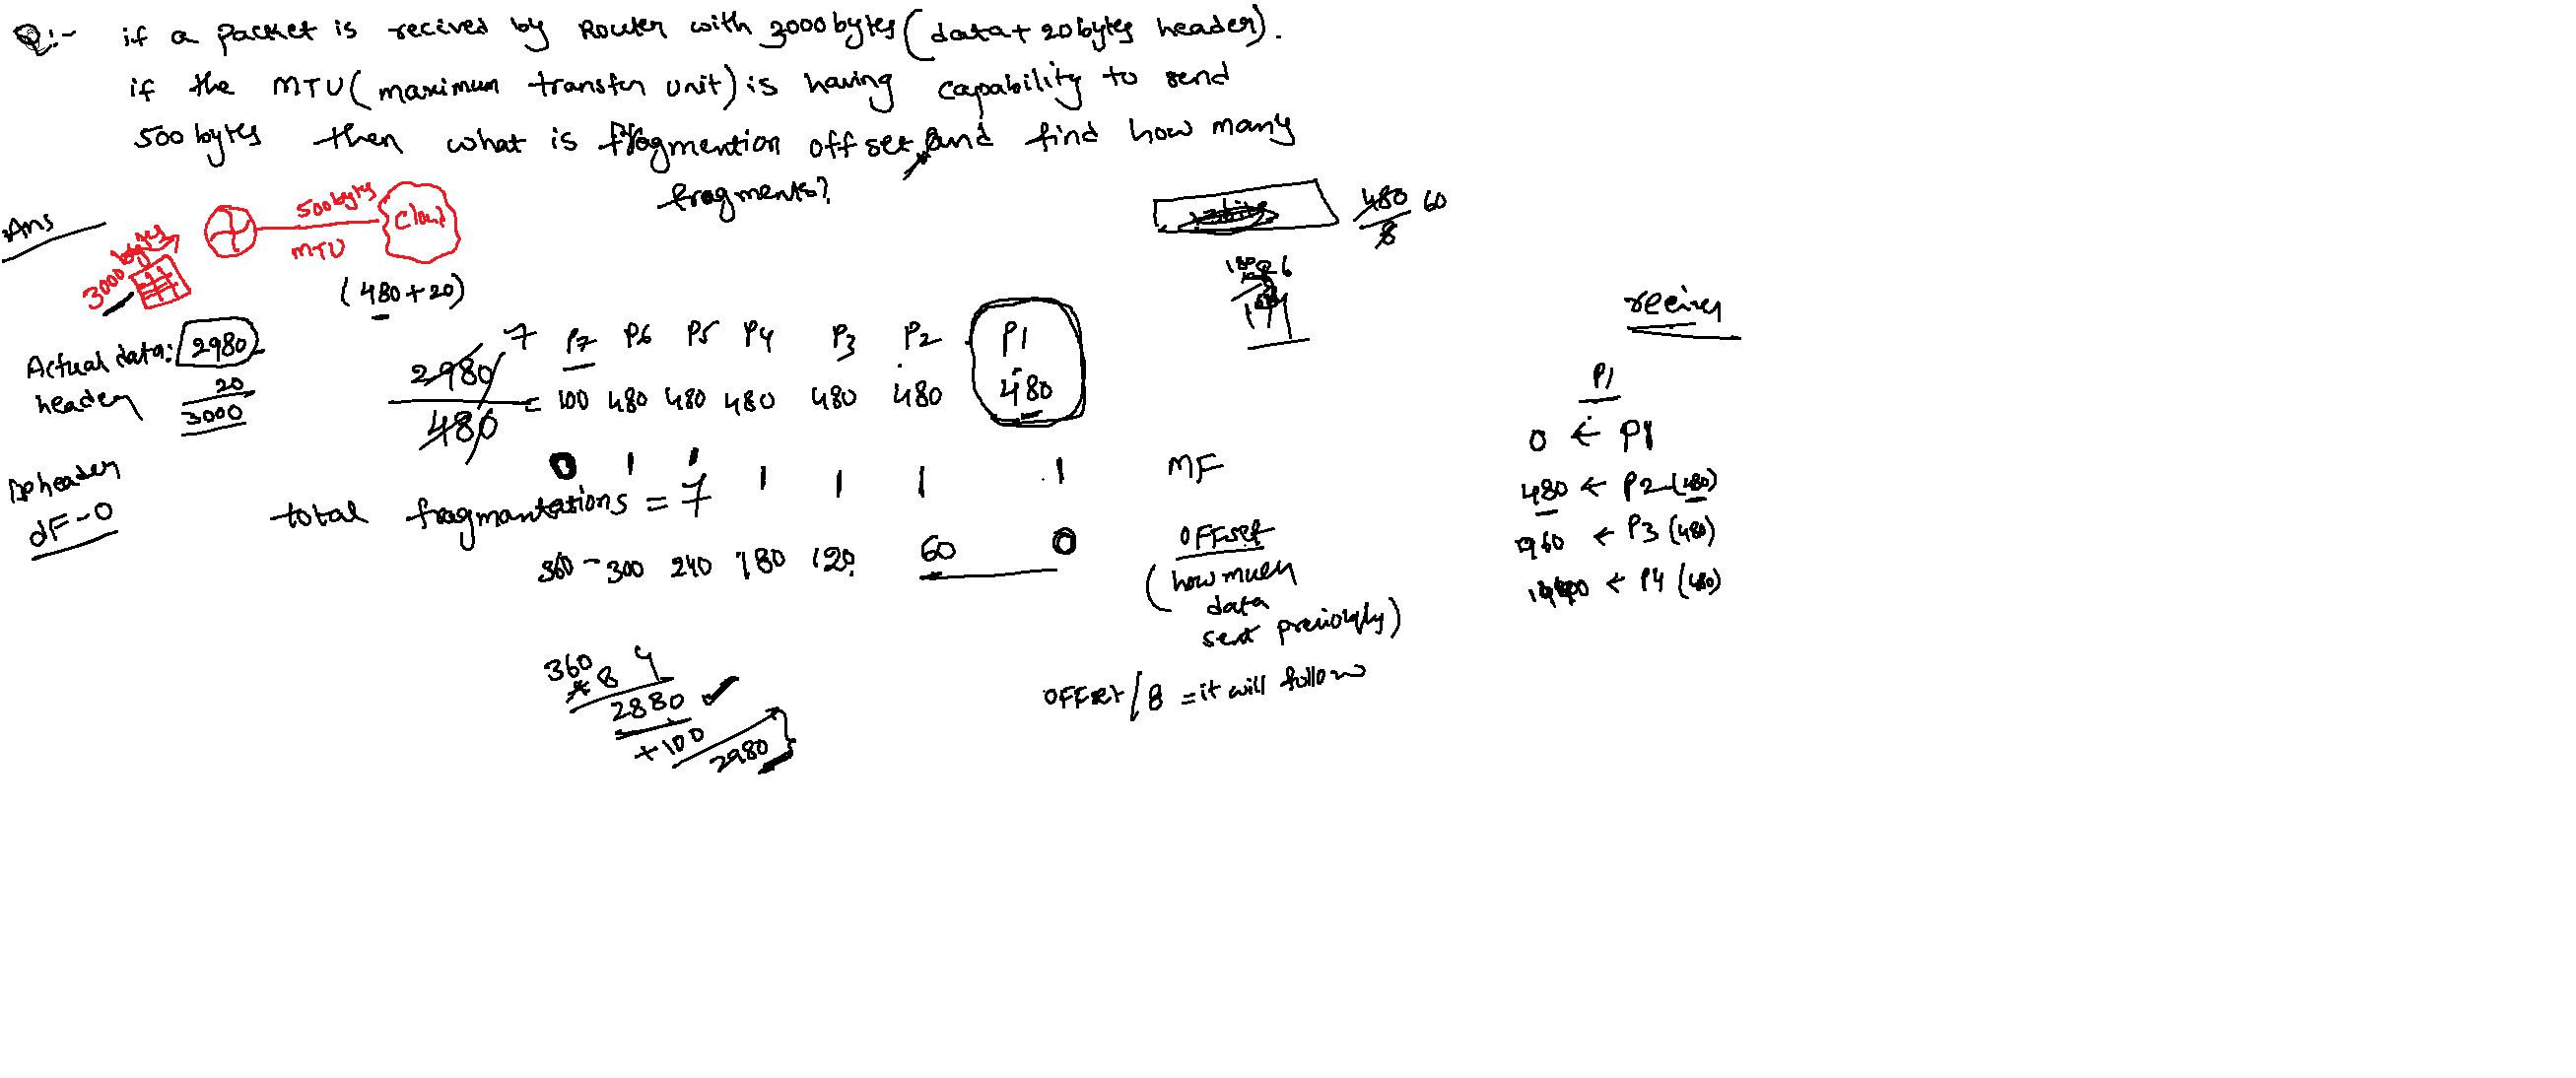 Q:- if a packet is recived by Router with 3000 bytes (data + 20 bytes header).
if the MTU ( maximum transfer unit) is having capability to send
500 bytes then what is fragmention off set, and find how many
fragments?
Ans
3000 bytes
500 bytes
MTU
cloud
(480+20)
480
8
60
Actual data: 2980
header 20
3000
2980
480
7
=
P7 P6 P5 P4 P3 P2 P1
100 480 480 480 480 480 480
0 1 1 1 1 1 1 MF
header
dF-0
total fragmantations = 7
360 - 300 240 180 120 60 0 OFFset
(how much
data
sent previously)
OFFset/8 = it will follow
360
*8
2880
+100
2980
P1
0 ← P1
480 ← P2 (480)
960 ← P3 (480)
← P4 (480)